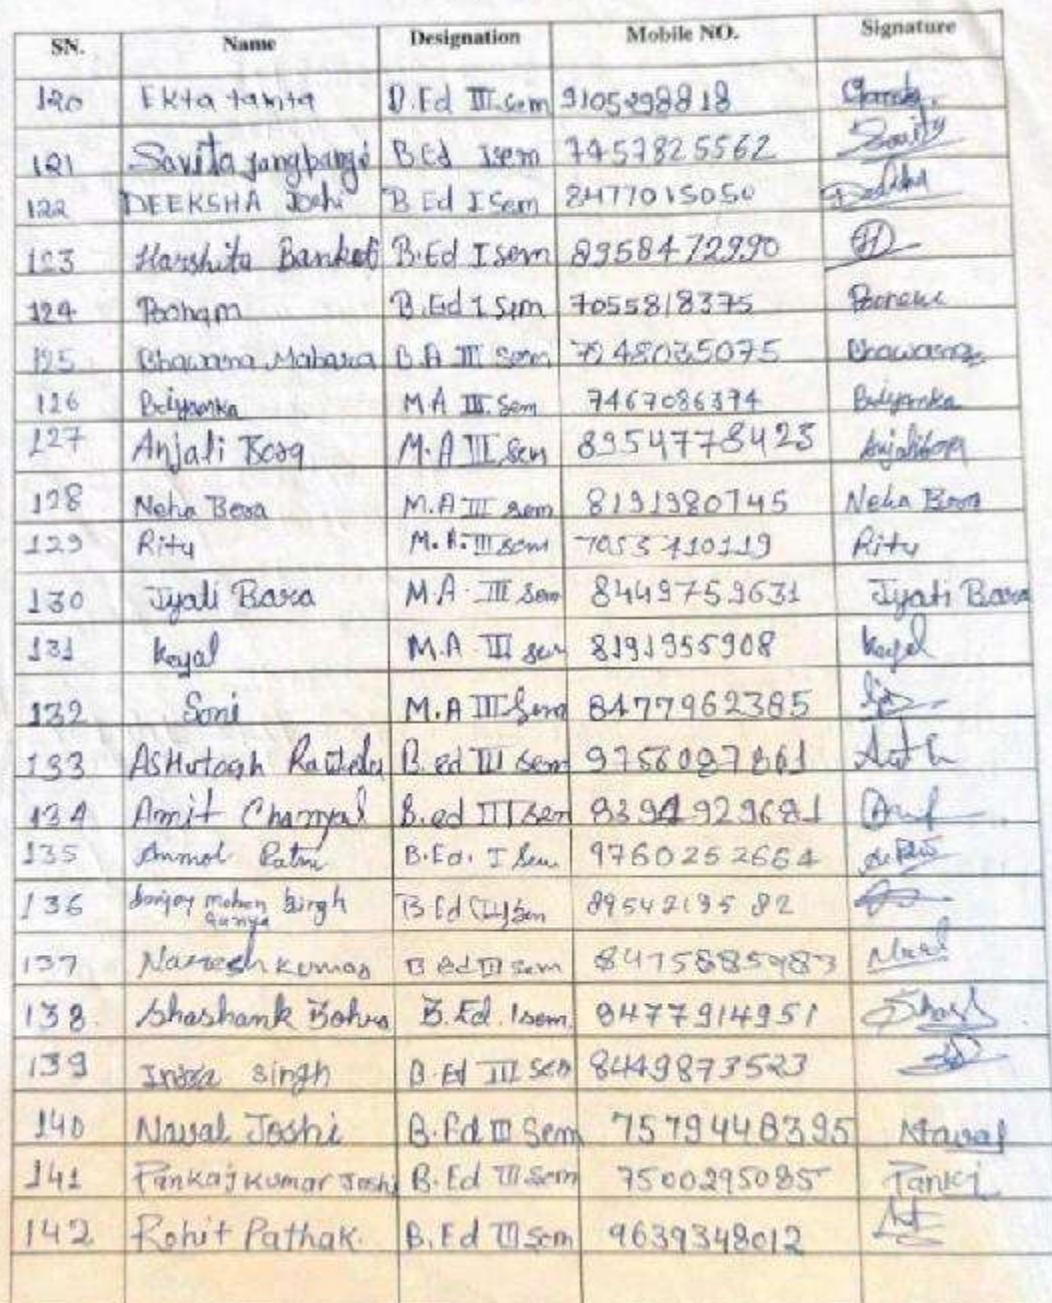 SN. Name Designation Mobile NO. Signature
120 Ekta tamta B.Ed III sem 9105298818
121 Savita jangpangi B.Ed I sem 7457825562 Savita
122 DEEKSHA Joshi B Ed I Sem 8477015050
123 Harshita Bankoti B.Ed I sem 8958472990 H
124 Poonam B.Ed I Sem 7055818375 Poonam
125 Bhawana Mahara B.A III Sem 7248035075 Bhawana
126 Priyanka M.A III Sem 7467086374 Priyanka
127 Anjali Bora M.A III Sem 8954778423 Anjali Bora
128 Neha Bora M.A III Sem 8191980745 Neha Bora
129 Ritu M.A. III Sem 7055410119 Ritu
130 Jyati Bara M.A. III Sem 8449759631 Jyati Bara
131 Kajal M.A III sem 8191955908 Kajal
132 Soni M.A III Sem 8477962385
133 ASHutosh Rautela B.ed III Sem 9756087861
134 Amit Chamyal B.ed III Sem 8394929681
135 Anmol B.Ed. I Sem 9760252664
136 Sanjay Mohan Singh B.Ed III Sem 8954219582
137 Naresh Kumar B Ed III Sem 8475885983
138. Shashank Bohra B.Ed. I sem. 8477914951 Shash
139 singh B.Ed III Sem 8449873523
140 Naval Joshi B.Ed III Sem 7579448395 Naval
141 Pankaj Kumar Joshi B.Ed III Sem 7500295085 Pankj
142 Rohit Pathak. B.Ed III Sem 9639348012